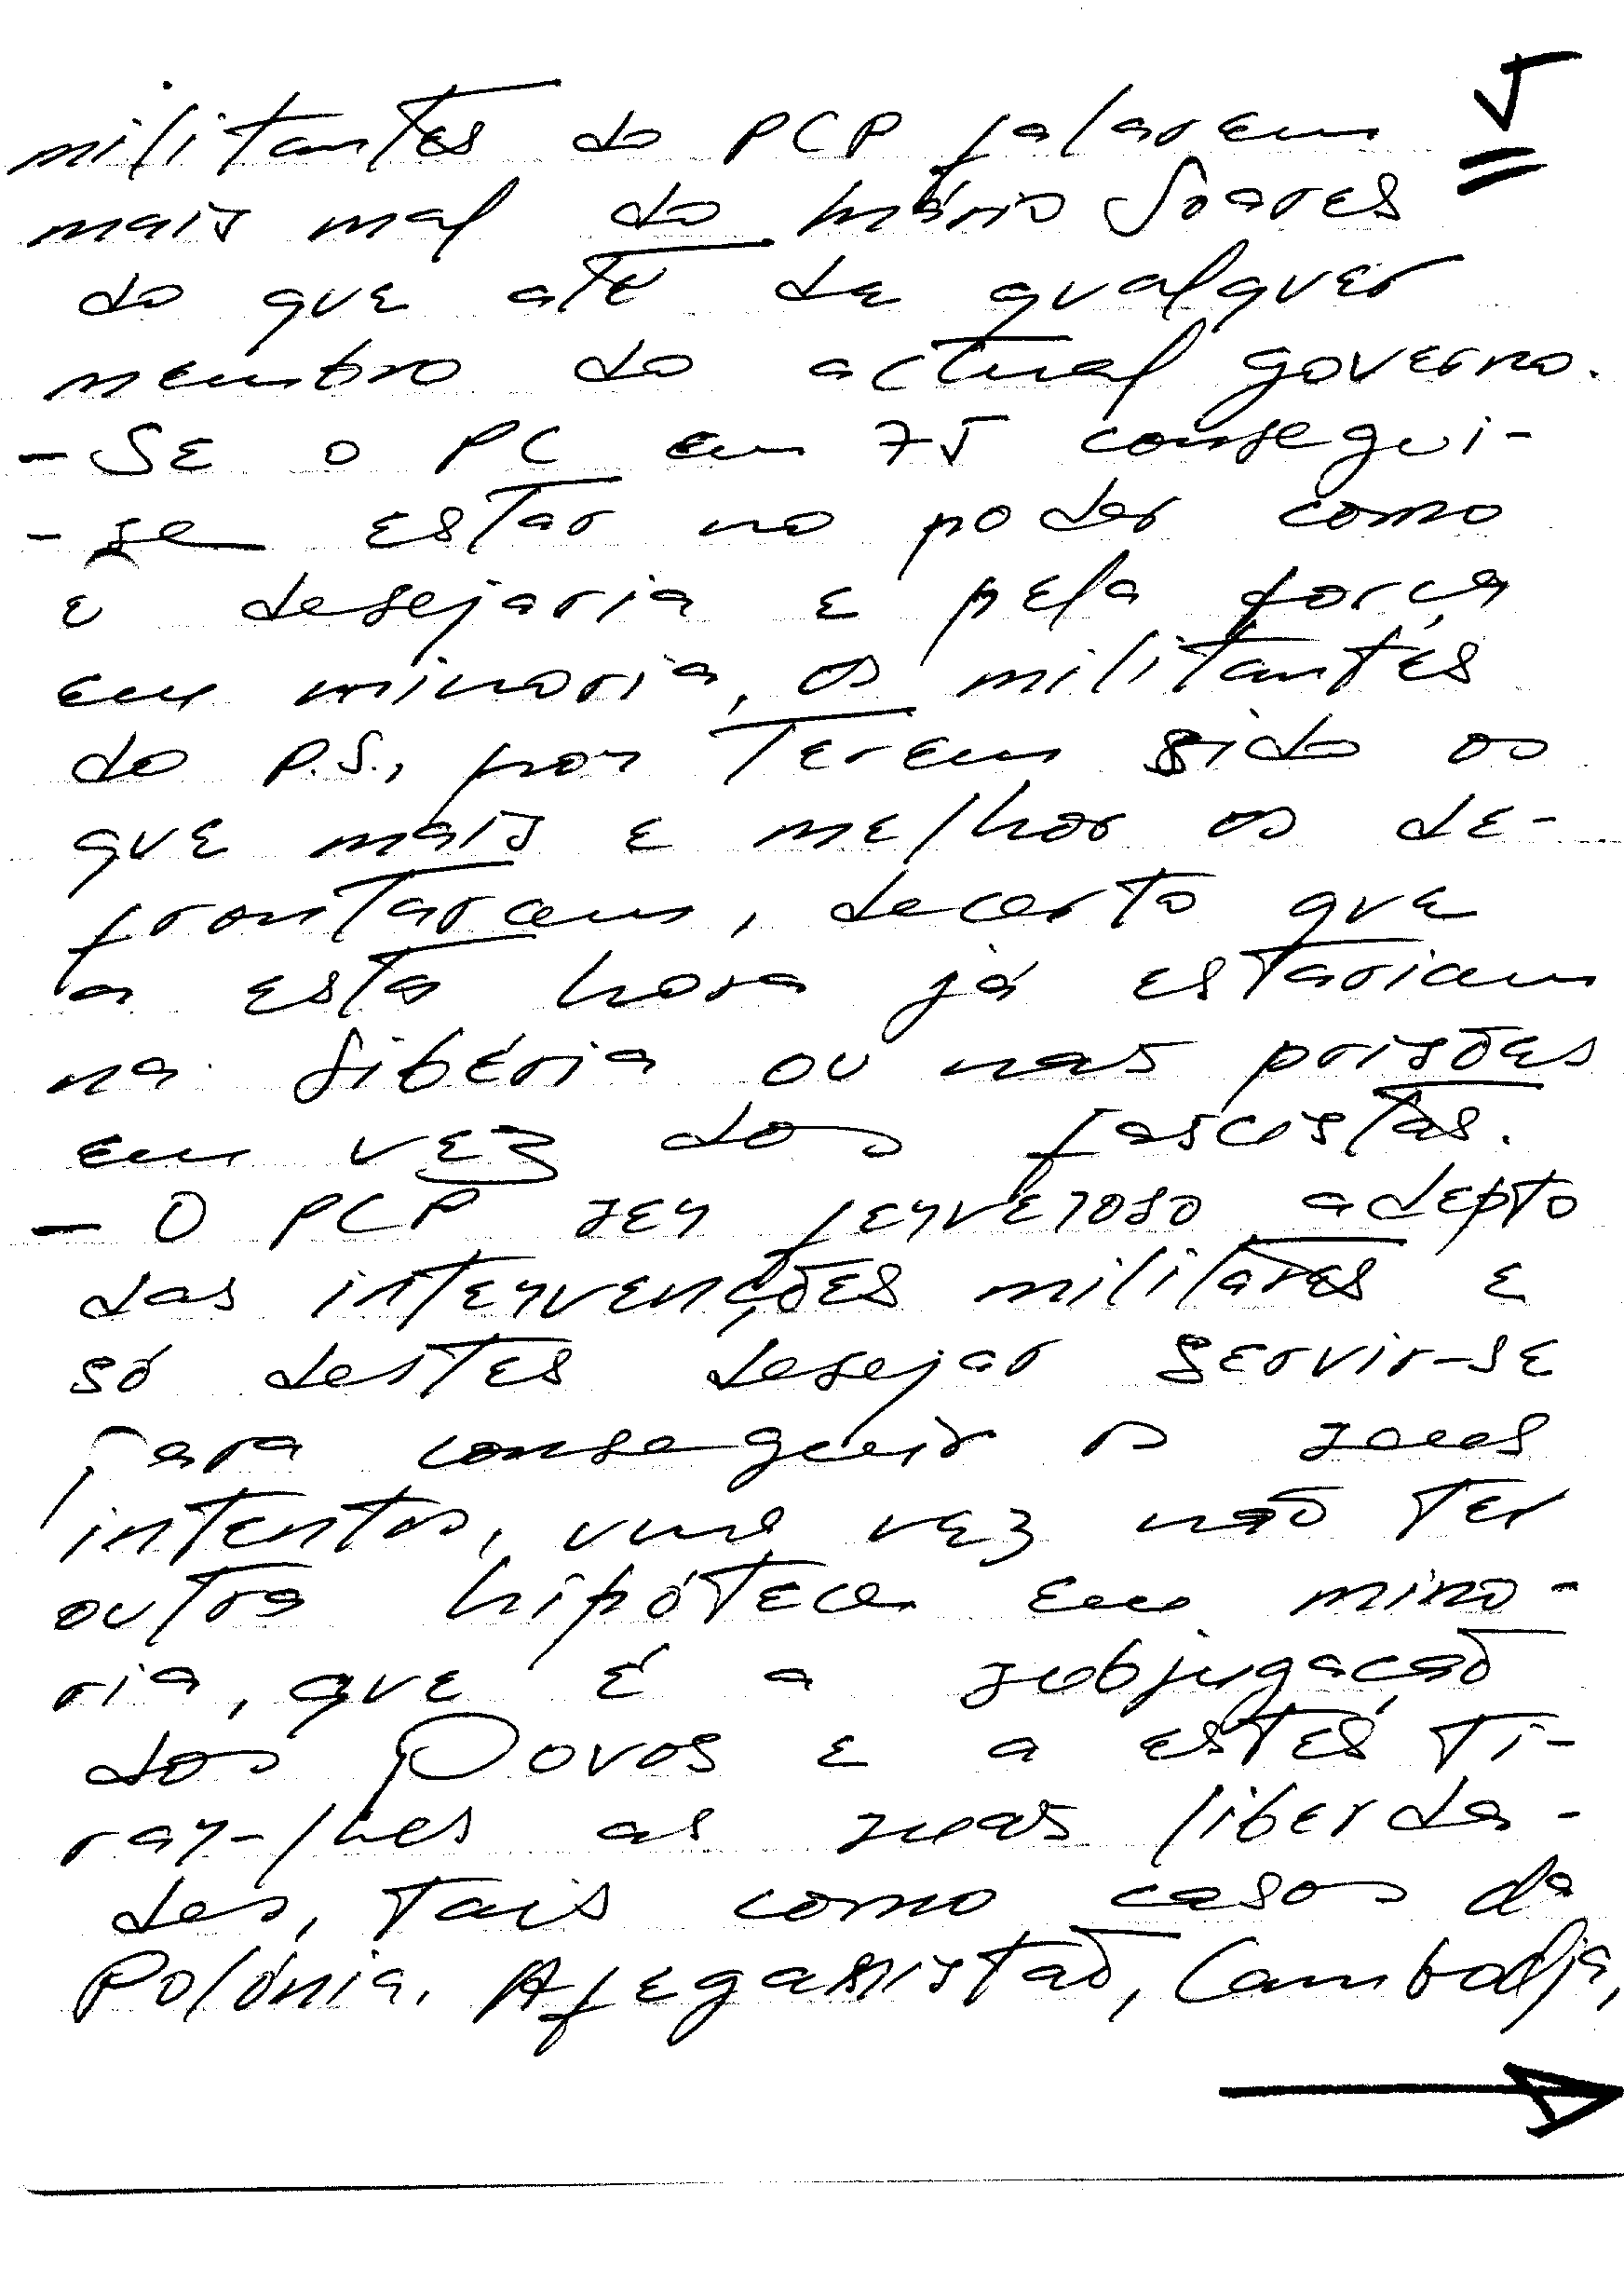 5
militantes do PCP falarem
mais mal do Mário Soares
do que até de qualquer
membro do actual governo.
- Se o PC em 75 consegui-
- se estar no poder como
e desejaria e pela força
em minoria, os militantes
do P.S., por terem sido os
que mais e melhor os de-
frontaram, decerto que
a esta hora já estariam
na Sibéria ou nas prisões
em vez dos fascistas.
- O PCP ser ferveroso adepto
das intervenções militares e
só destes desejar servir-se
para conseguir os seus
intentos, uma vez não ter
outra hipótece em mino-
ria, que é a subjugação
dos Povos e a estes ti-
rar-lhes as suas liberda-
des, tais como casos da
Polónia. Afeganistão, Cambodja,